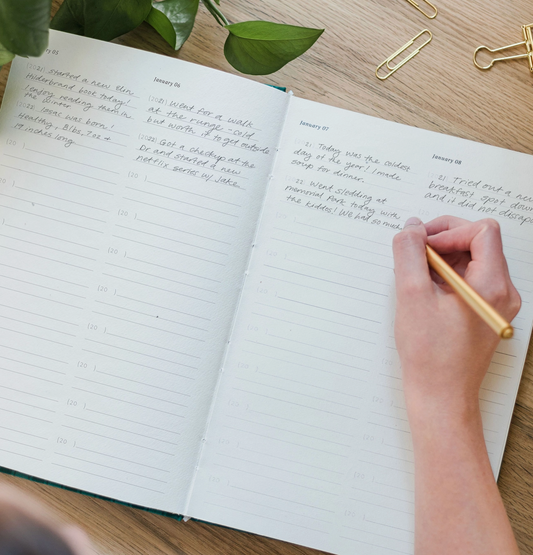 05
(2021) started a new Elin
Hilderbrand book today!
I enjoy reading them in
the winter
(2022) was born!
Healthy, 8lbs, 7oz +
19 inches long
(20 )
(20 )
(20 )
(20 )
January 06
(2021) Went for a walk
at the range - cold
but worth it to get outside
(2022) Got a checkup at the
Dr and started a new
netflix series w/ Jake.
(20 )
(20 )
(20 )
(20 )
(20 )
(20 )
(20 )
(20 )
January 07
21 Today was the coldest
day of the year! I made
soup for dinner.
22 Went sledding at
memorial Park today with
the kiddos! We had so much
January 08
21 Tried out a new
breakfast spot down
and it did not disapp